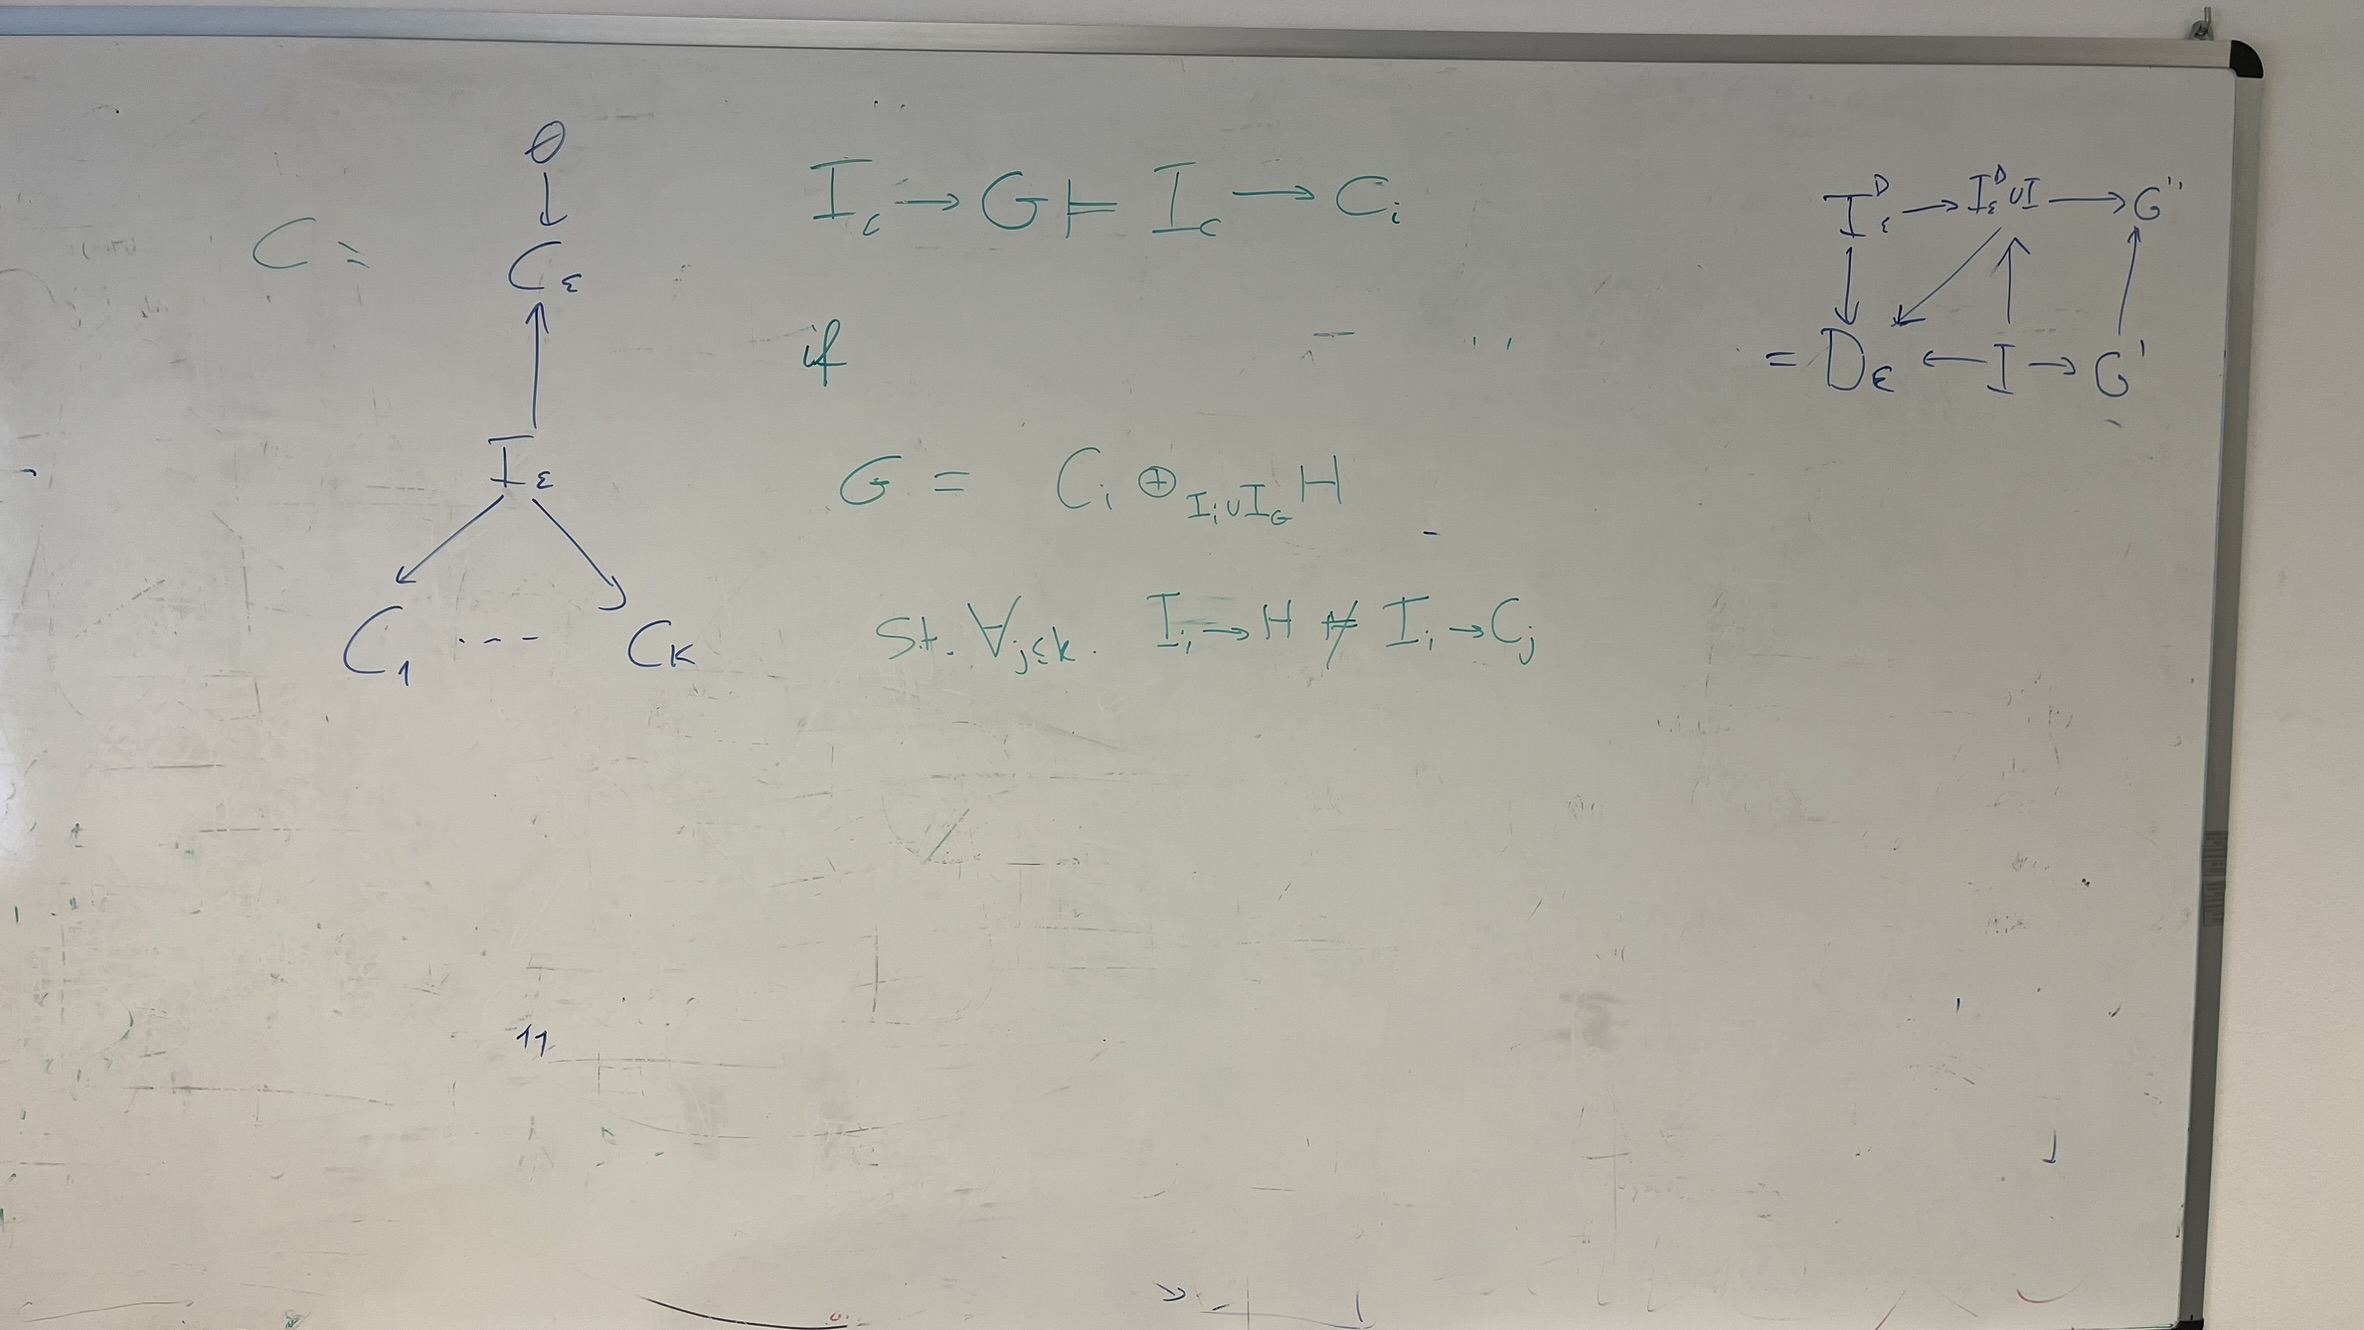 ∅
↓
C = C_ε
↑
I_ε
↙ ↘
C_1 --- C_K
I_c → G ⊨ I_c → C_i
if
G = C_i ⊕_{I_i ∪ I_G} H
St. ∀_{j≤k}. I_i → H ⊭ I_i → C_j
I_ε^D → I_ε^D ∪ I → G''
↓ ↙ ↑ ↑
= D_ε ← I → G'
11